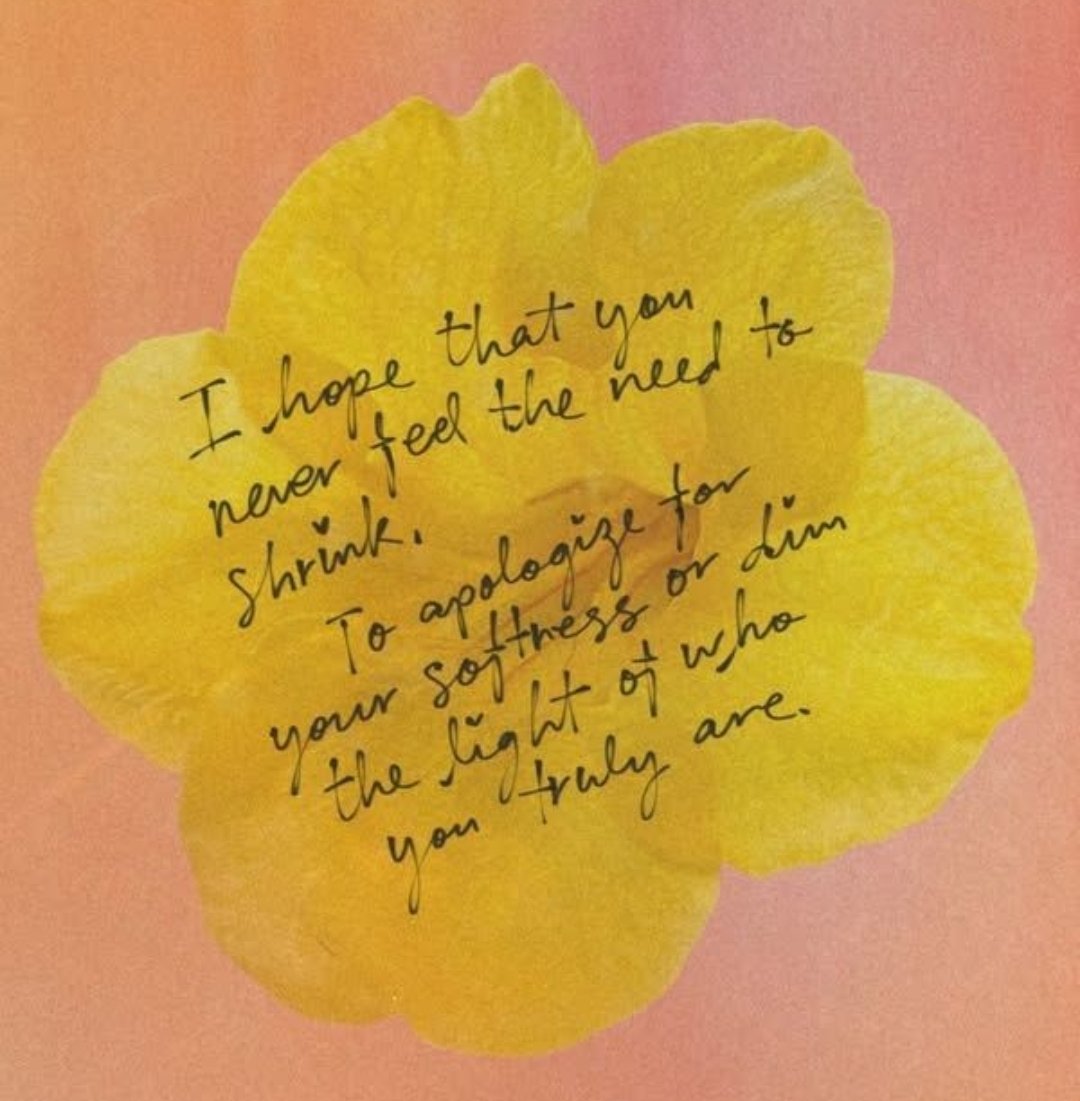 I hope that you
never feel the need to
shrink.
To apologize for
your softness or dim
the light of who
you truly are.